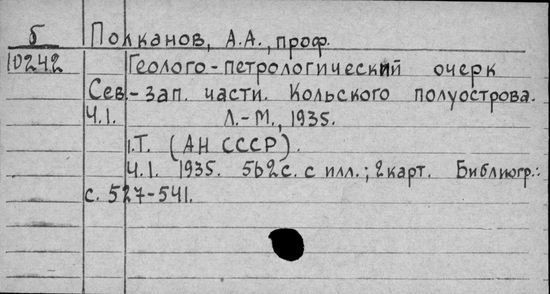 б Полканов, А.А., проф.
10242 Геолого-петрологический очерк
Сев.-зап. части. Кольского полуострова.
Ч.1. Л.-М., 1935.
1.Т. (АН СССР).
Ч.1. 1935. 562с. с илл.; 2карт. Библиогр.:
с. 527-541.